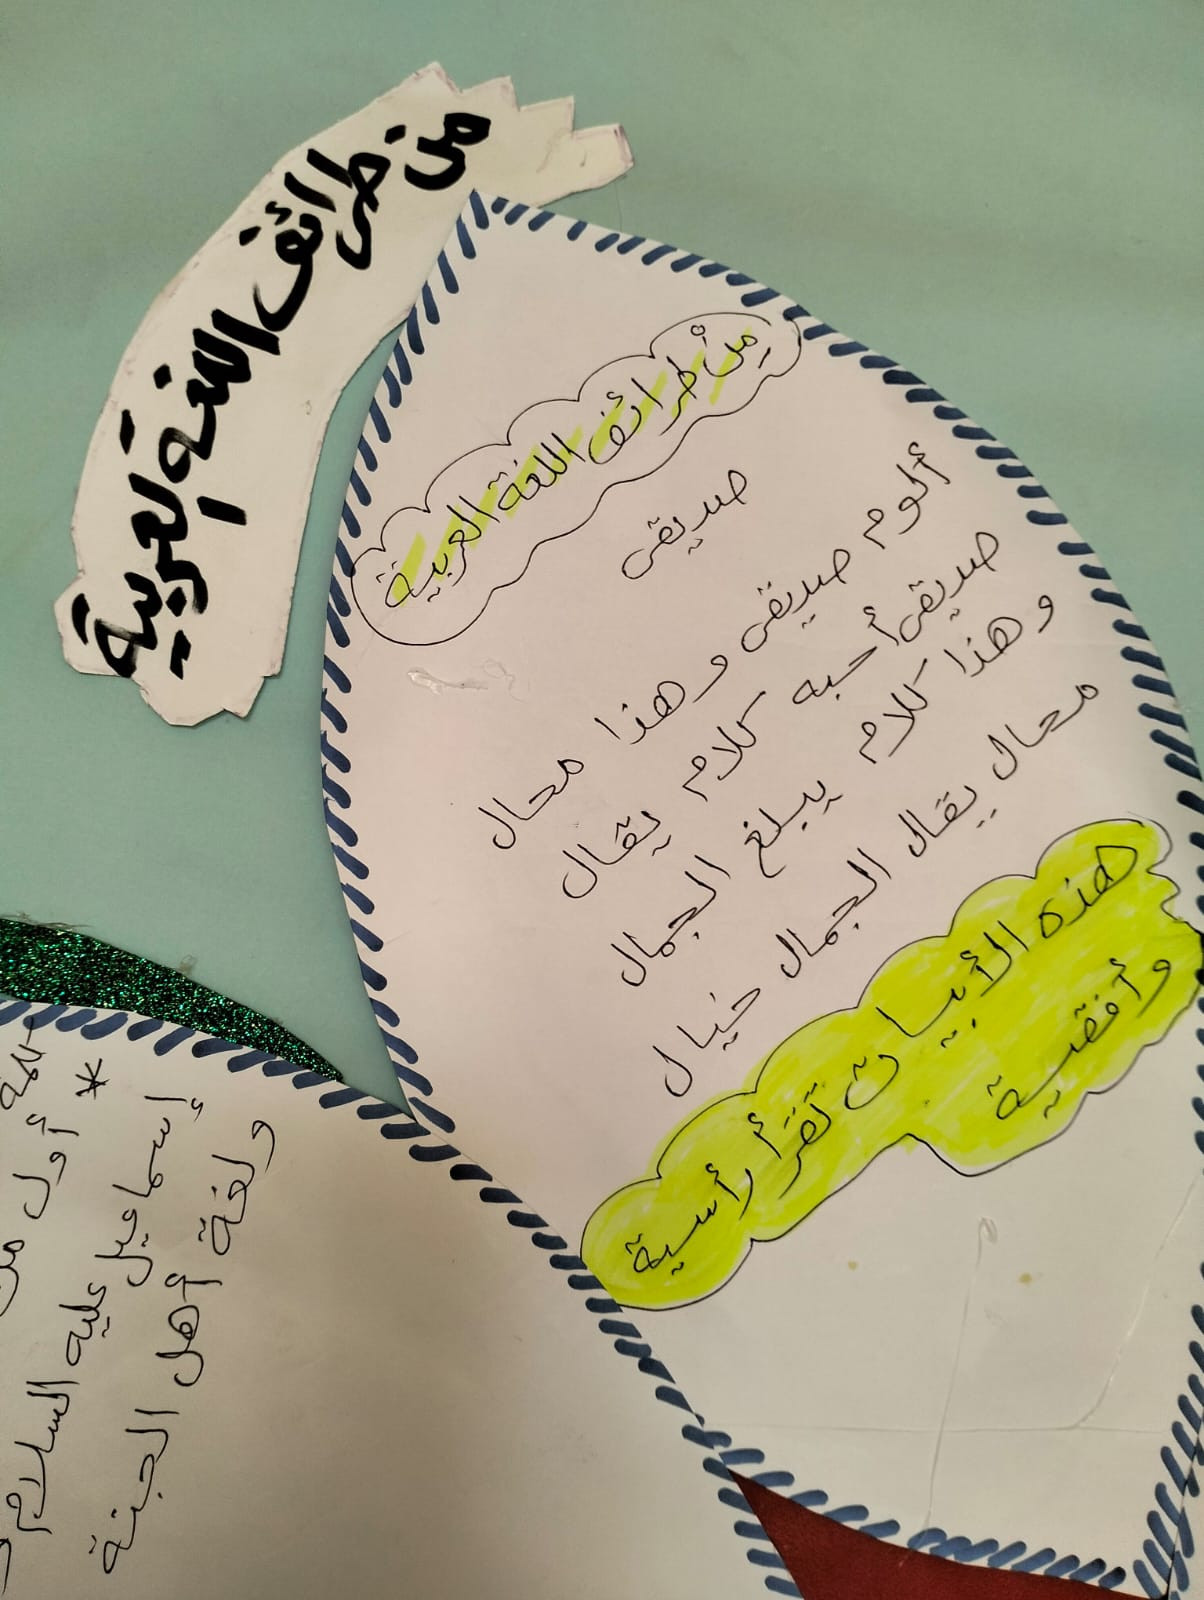 من طرائف اللغة العربية
من طرائف اللغة العربية
صديقى
ألوم صديقى وهذا محال
صديقى أحبه كلام يقال
وهذا كلام يبلغ الجمال
محال يقال الجمال خيال
هذه الأبيات تقرأ رأسية
وأفقية
* أول من
إسماعيل عليه السلام
ولغة أهل الجنة